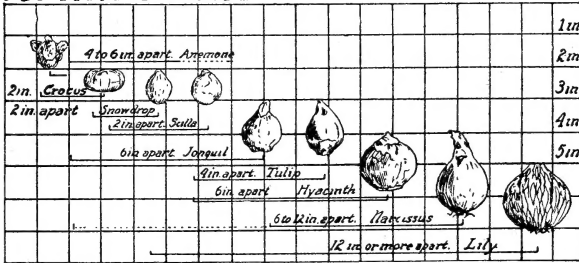 1in
4 to 6 in. apart Anemone
2in
2in. Crocus
3in
2 in. apart Snowdrop
2 in. apart Scilla
4in
6 in apart Jonquil
5in
4 in. apart Tulip
6 in. apart Hyacinth
6 to 12 in. apart. Narcissus
12 in or more apart. Lily